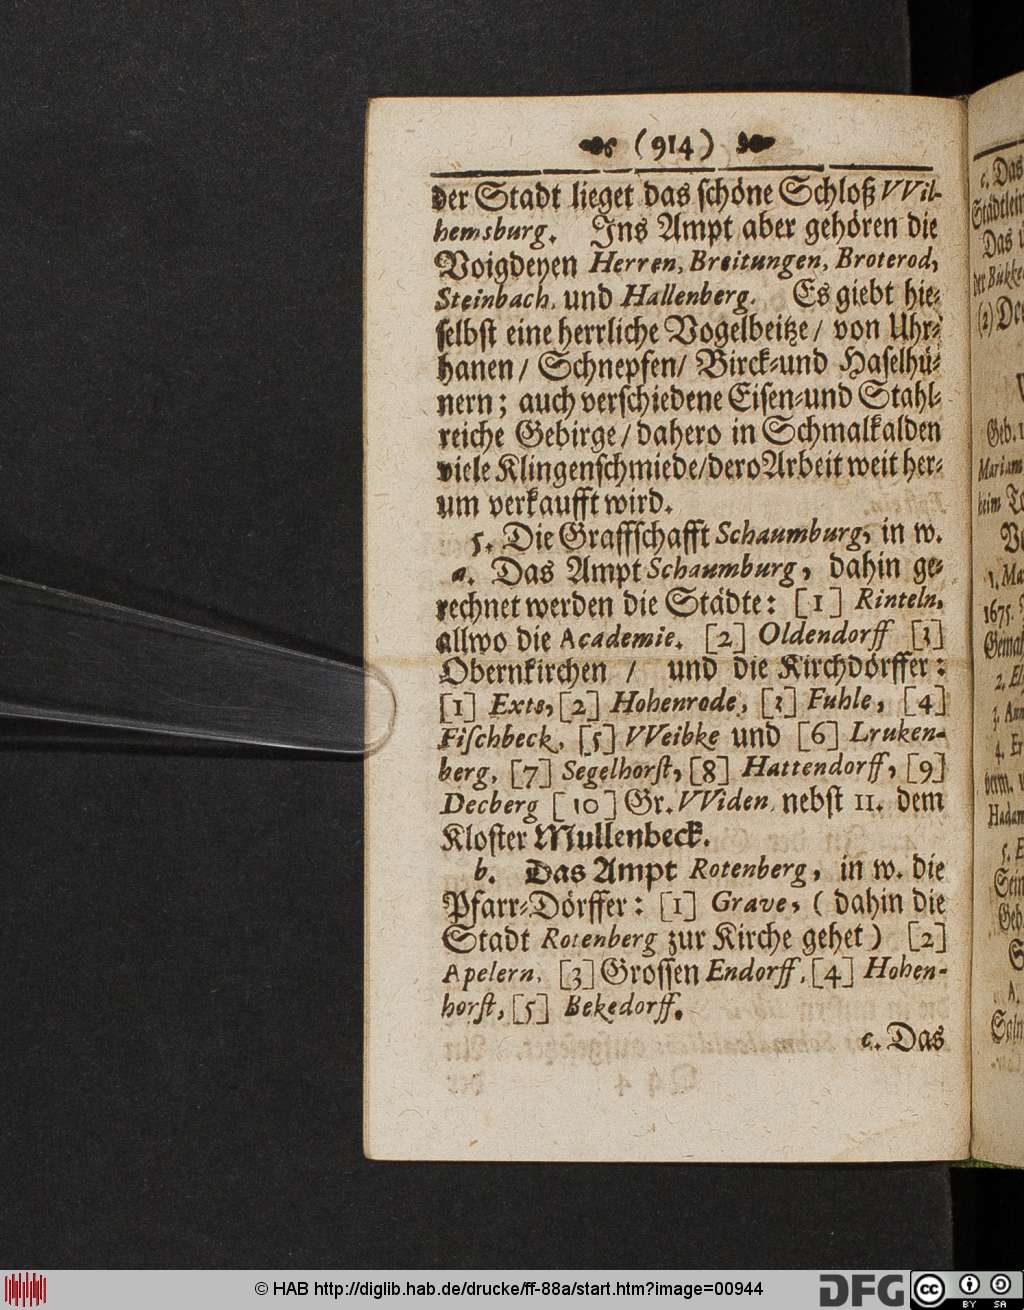 (914)
der Stadt lieget das schöne Schloß VVil-
hemsburg. Ins Ampt aber gehören die
Voigdeyen Herren, Breitungen, Broterod,
Steinbach, und Hallenberg. Es giebt hie-
selbst eine herrliche Vogelbeitze / von Uhr-
hanen / Schnepfen / Birck-und Haselhü-
nern; auch verschiedene Eisen-und Stahl-
reiche Gebirge / dahero in Schmalkalden
viele Klingenschmiede / dero Arbeit weit her-
um verkaufft wird.
5. Die Graffschafft Schaumburg, in w.
a. Das Ampt Schaumburg, dahin ge-
rechnet werden die Städte: [1] Rinteln,
allwo die Academie. [2] Oldendorff [3]
Obernkirchen / und die Kirchdörffer:
[1] Exts, [2] Hohenrode, [3] Fuhle, [4]
Fischbeck, [5] VVeibke und [6] Lruken-
berg, [7] Segelhorst, [8] Hattendorff, [9]
Decberg [10] Gr. VViden, nebst 11. dem
Kloster Mullenbeck.
b. Das Ampt Rotenberg, in w. die
Pfarr-Dörffer: [1] Grave, (dahin die
Stadt Rotenberg zur Kirche gehet) [2]
Apelern, [3] Grossen Endorff, [4] Hohen-
horst, [5] Bekedorff.
c. Das
c. Das
Städtlein
Das
der Bükke
(2) De
Geb.
Mariam
heim
1. Ma
1675.
Gemah
2. El
4. Er
verm.
Hadam
5. E
Sein
Geb
A.
© HAB http://diglib.hab.de/drucke/ff-88a/start.htm?image=00944
DFG
cc
BY SA